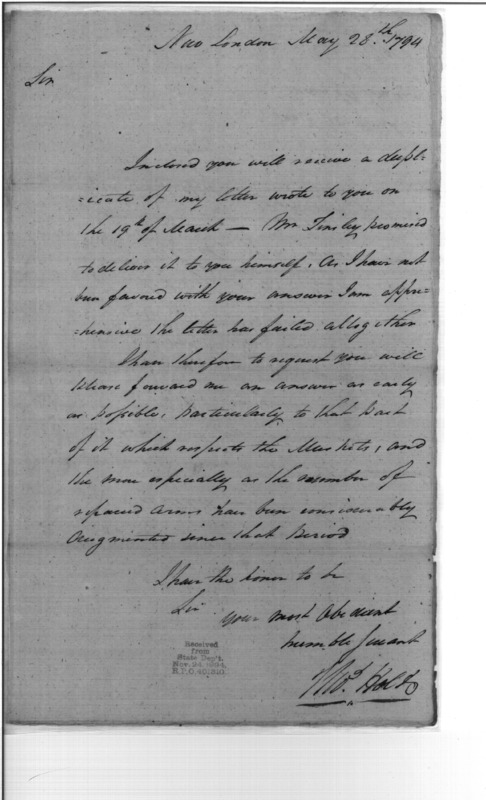 New London May 28.th 1794
Sir
Inclosed you will receive a dupl-
-icate of my letter wrote to you on
the 19th of March — Mr Tinsley promised
to deliver it to you himself, As I have not
been favored with your answer I am appre-
-hensive the letter has failed altogether
I have therefore to request you will
please forward me an answer as early
as possible, particularly to that part
of it which respects the Muskets, and
the more especially as the number of
repaired arms have been considerably
augmented since that period
I have the honor to be
Sir your most Obedient
humble Servant
Received
from
State Dep't.
Nov. 24, 1894,
R.P.O.
Tho.s Holt